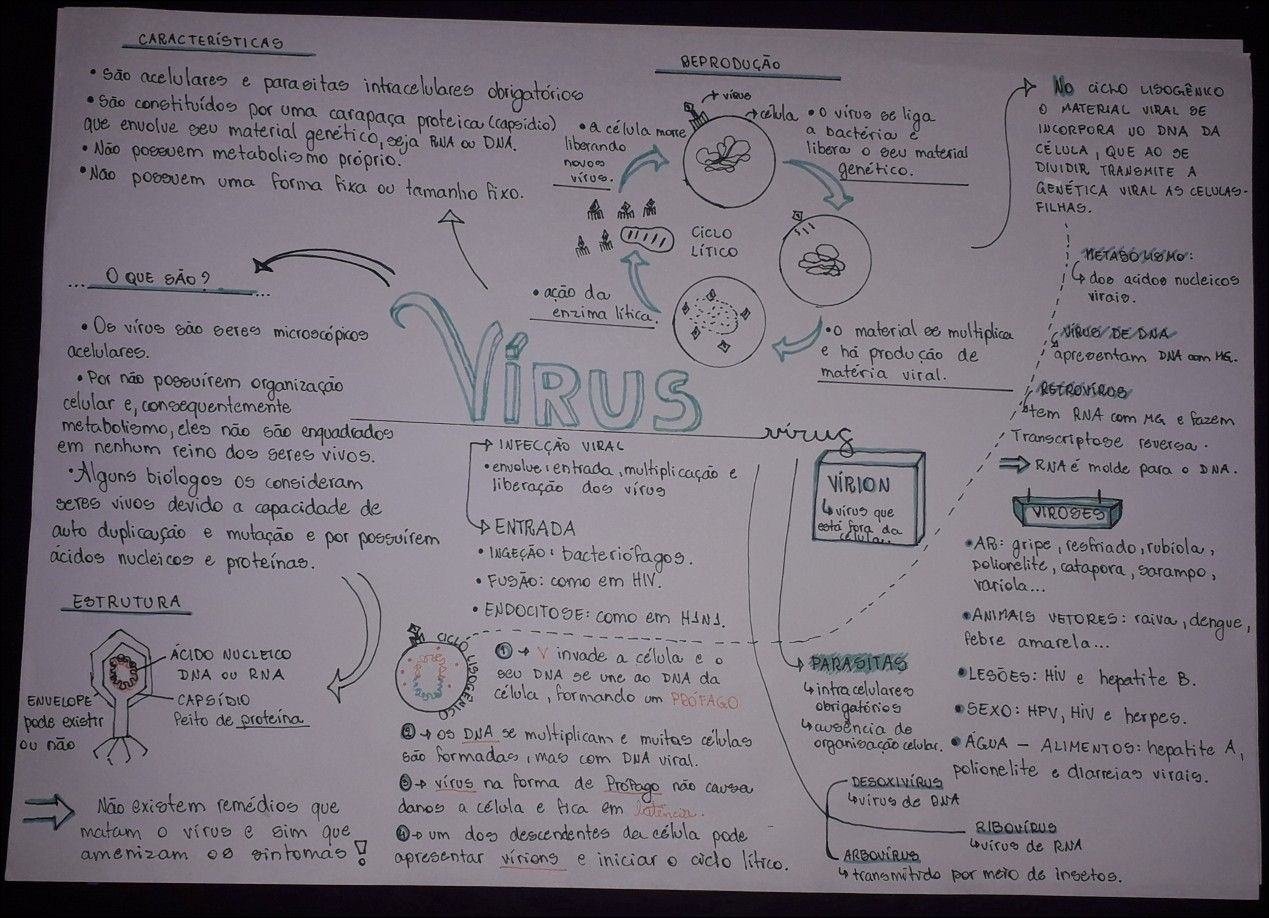 CARACTERÍSTICAS
• São acelulares e parasitas intracelulares obrigatórios
• São constituídos por uma carapaça proteica (capsídio)
que envolve seu material genético, seja RNA ou DNA.
• Não possuem metabolismo próprio.
• Não possuem uma forma fixa ou tamanho fixo.
REPRODUÇÃO
→ vírus
→ célula
• O vírus se liga
a bactéria e
libera o seu material
genético.
• A célula morre
liberando
novos
vírus.
CICLO
LÍTICO
• ação da
enzima lítica.
• O material se multiplica
e há produção de
matéria viral.
No CICLO LISOGÊNICO
O MATERIAL VIRAL SE
INCORPORA NO DNA DA
CÉLULA, QUE AO SE
DIVIDIR TRANSMITE A
GENÉTICA VIRAL AS CELULAS-
FILHAS.
METABOLISMO:
↳ dos acidos nucleicos
virais.
VÍRUS DE DNA
apresentam DNA com MG.
RETROVÍRUS
↳ tem RNA com MG e fazem
Transcriptase reversa.
⇒ RNA é molde para o DNA.
... O QUE SÃO? ...
• Os vírus são seres microscópicos
acelulares.
• Por não possuírem organização
celular e, consequentemente
metabolismo, eles não são enquadrados
em nenhum reino dos seres vivos.
• Alguns biólogos os consideram
seres vivos devido a capacidade de
auto duplicaução e mutação e por possuírem
ácidos nucleicos e proteínas.
VÍRUS
vírus
→ INFECÇÃO VIRAL
• envolve: entrada, multiplicação e
liberação dos vírus
→ ENTRADA
• INGEÇÃO: bacteriófagos.
• FUSÃO: como em HIV.
• ENDOCITOSE: como em H1N1.
VÍRION
↳ vírus que
está fora da
célula...
VIROSES
• AR: gripe, resfriado, rubíola,
polionelite, catapora, sarampo,
varíola...
• ANIMAIS VETORES: raiva, dengue,
febre amarela...
• LESÕES: HIV e hepatite B.
• SEXO: HPV, HIV e herpes.
• ÁGUA - ALIMENTOS: hepatite A,
polionelite e diarreias virais.
ESTRUTURA
ÁCIDO NUCLEICO
DNA OU RNA
CAPSÍDIO
Feito de proteína
ENVELOPE
pode existir
ou não
⇒ Não existem remédios que
matam o vírus e sim que
amenizam os sintomas!
CICLO LISOGÊNICO
① → V invade a célula e o
seu DNA se une ao DNA da
célula, formando um PRÓFAGO
② → os DNA se multiplicam e muitas células
são formadas, mas com DNA viral.
③ → vírus na forma de Prófago não causa
danos a célula e fica em latência.
④ → um dos descendentes da célula pode
apresentar vírions e iniciar o ciclo lítico.
PARASITAS
↳ intracelulares
obrigatórios
↳ ausência de
organização celular.
DESOXIVÍRUS
↳ vírus de DNA
RIBOVÍRUS
↳ vírus de RNA
ARBOVÍRUS
↳ transmitido por meio de insetos.